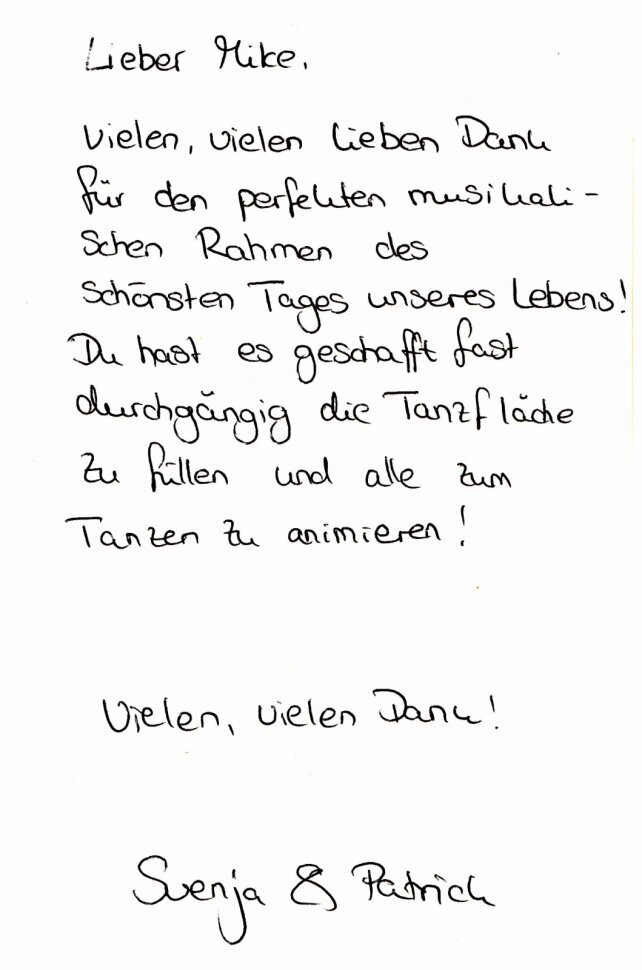 Lieber Mike.
Vielen, vielen lieben Dank
für den perfekten musikali-
schen Rahmen des
schönsten Tages unseres Lebens!
Du hast es geschafft fast
durchgängig die Tanzfläche
zu füllen und alle zum
Tanzen zu animieren!
Vielen, vielen Dank!
Svenja & Patrick